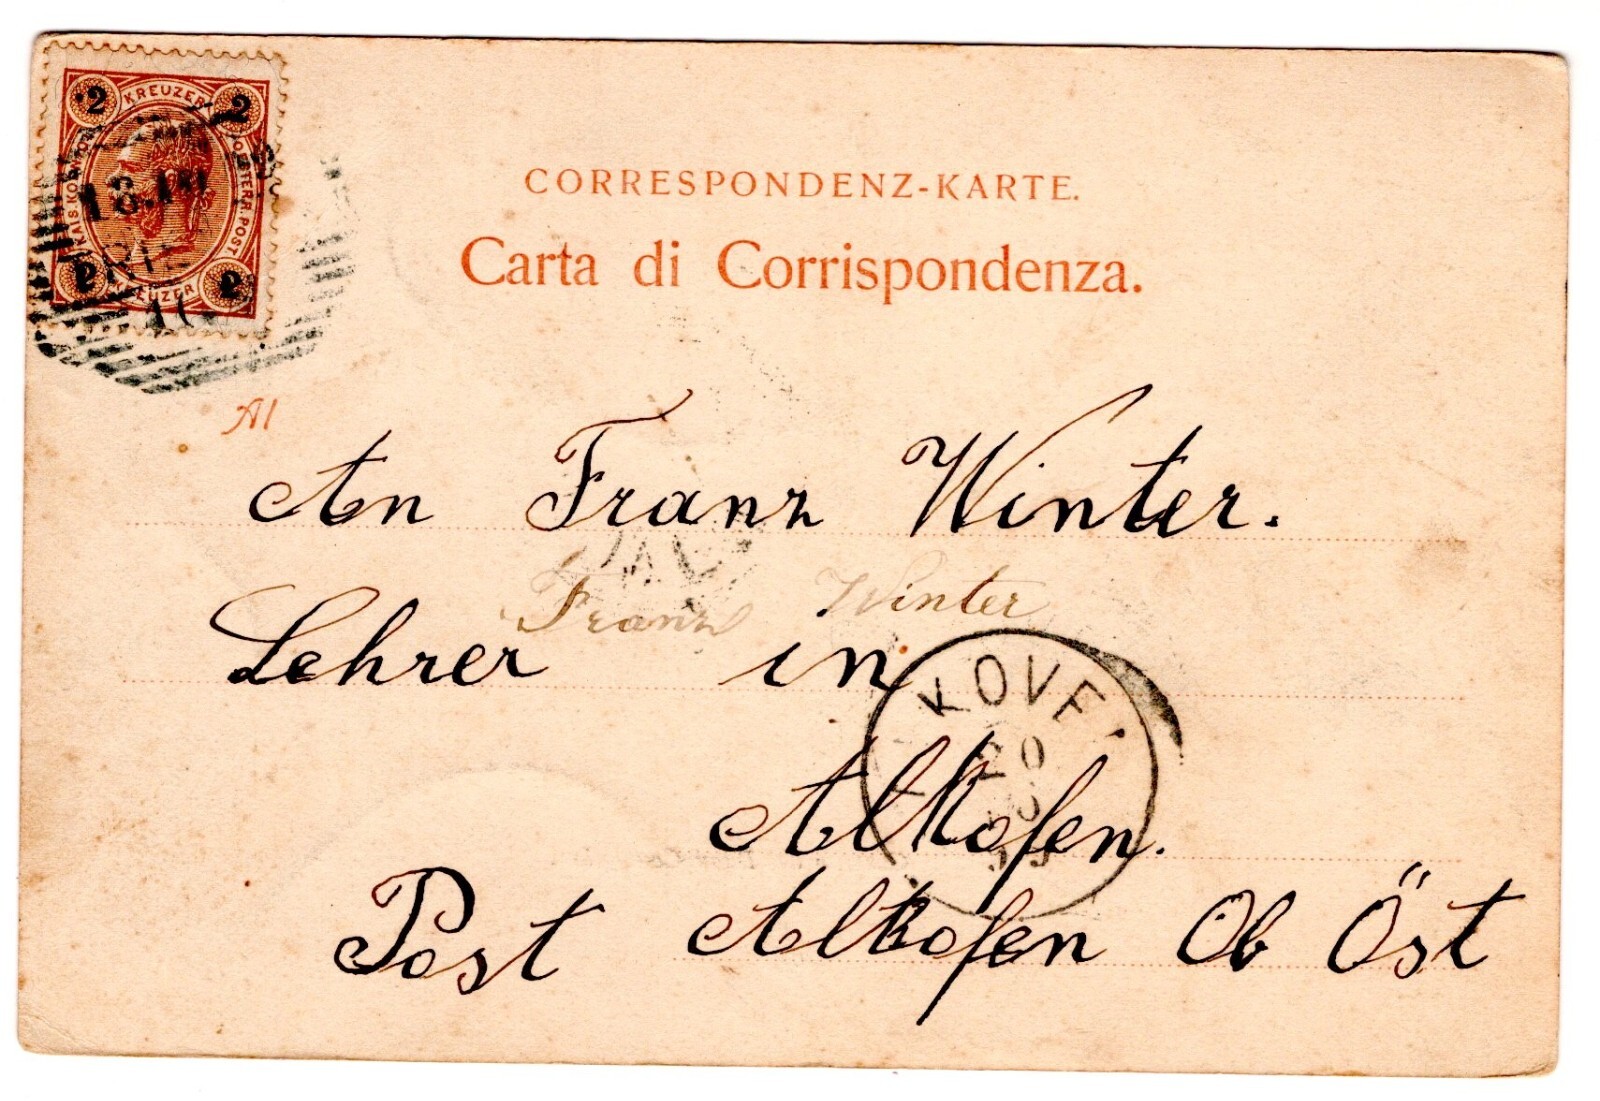 2 KREUZER 2
KAIS. KÖN.
ÖSTERR. POST
2 KREUZER 2
18.
CORRESPONDENZ-KARTE.
Carta di Corrispondenza.
A1
An Franz Winter.
Franz Winter
Lehrer in
KOVE
20
Alkofen.
Post Alkofen Ob Öst